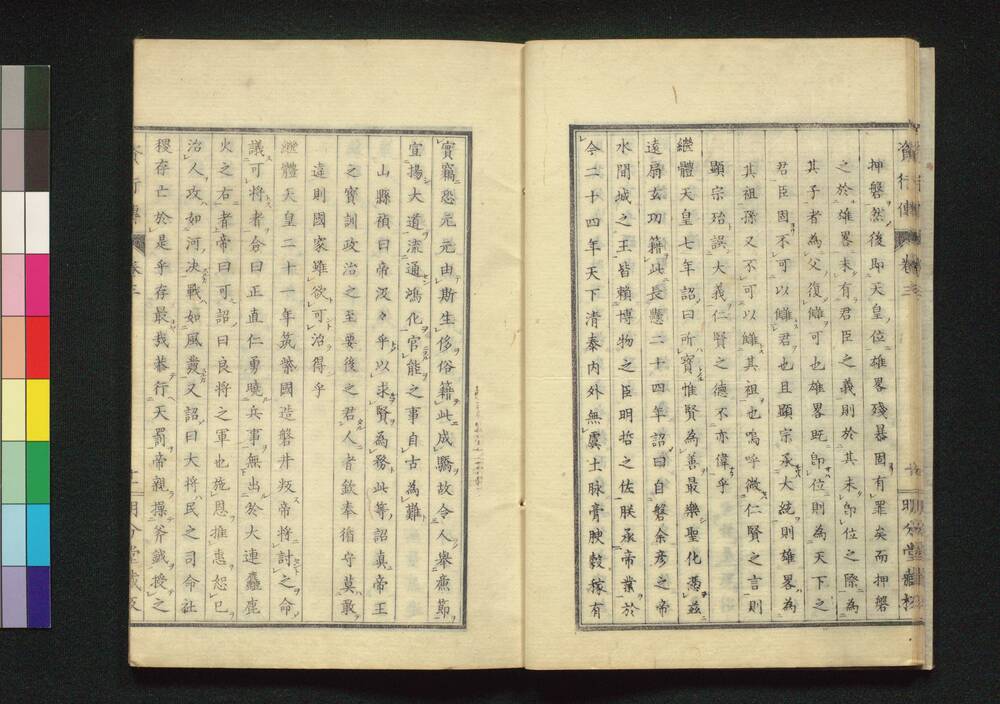 押磐然後即天皇位雄畧殘暴固有罪矣而押磐
之於雄畧未有君臣之義則於其未即位之際為
其子者為父復讎可也雄畧既即位則為天下之
君臣固不可以讎君也且顯宗承大統則雄畧為
其祖孫又不可以讎其祖也嗚呼微仁賢之言則
顯宗殆誤大義仁賢之德不亦偉乎
繼體天皇七年詔曰所寶惟賢為善最樂聖化憑茲
遠扇玄功籍此長懸二十四年詔曰自磐余彥之帝
水間城之王皆賴博物之臣明哲之佐朕承帝業於
今二十四年天下清泰内外無虞土脉膏腴穀稼有
實竊恐元元由斯生俗籍此成驕故令人舉廉節
宣揚大道流通鴻化官能之事自古為難
山縣禎曰帝汲々乎以求賢為務此等詔真帝王
之寶訓政治之至要後之君人者欽奉循守莫敢
違則國家雖欲可治得乎
繼體天皇二十一年筑紫國造磐井叛帝將討之命
議可將者僉曰正直仁勇曉兵事無出於大連麤鹿
火之右者帝曰可詔曰良將之軍也施恩推惠恕己
治人攻如河决戰如風發又詔曰大將民之司命社
稷存亡於是乎存最哉恭行天罰帝親操斧鉞授之